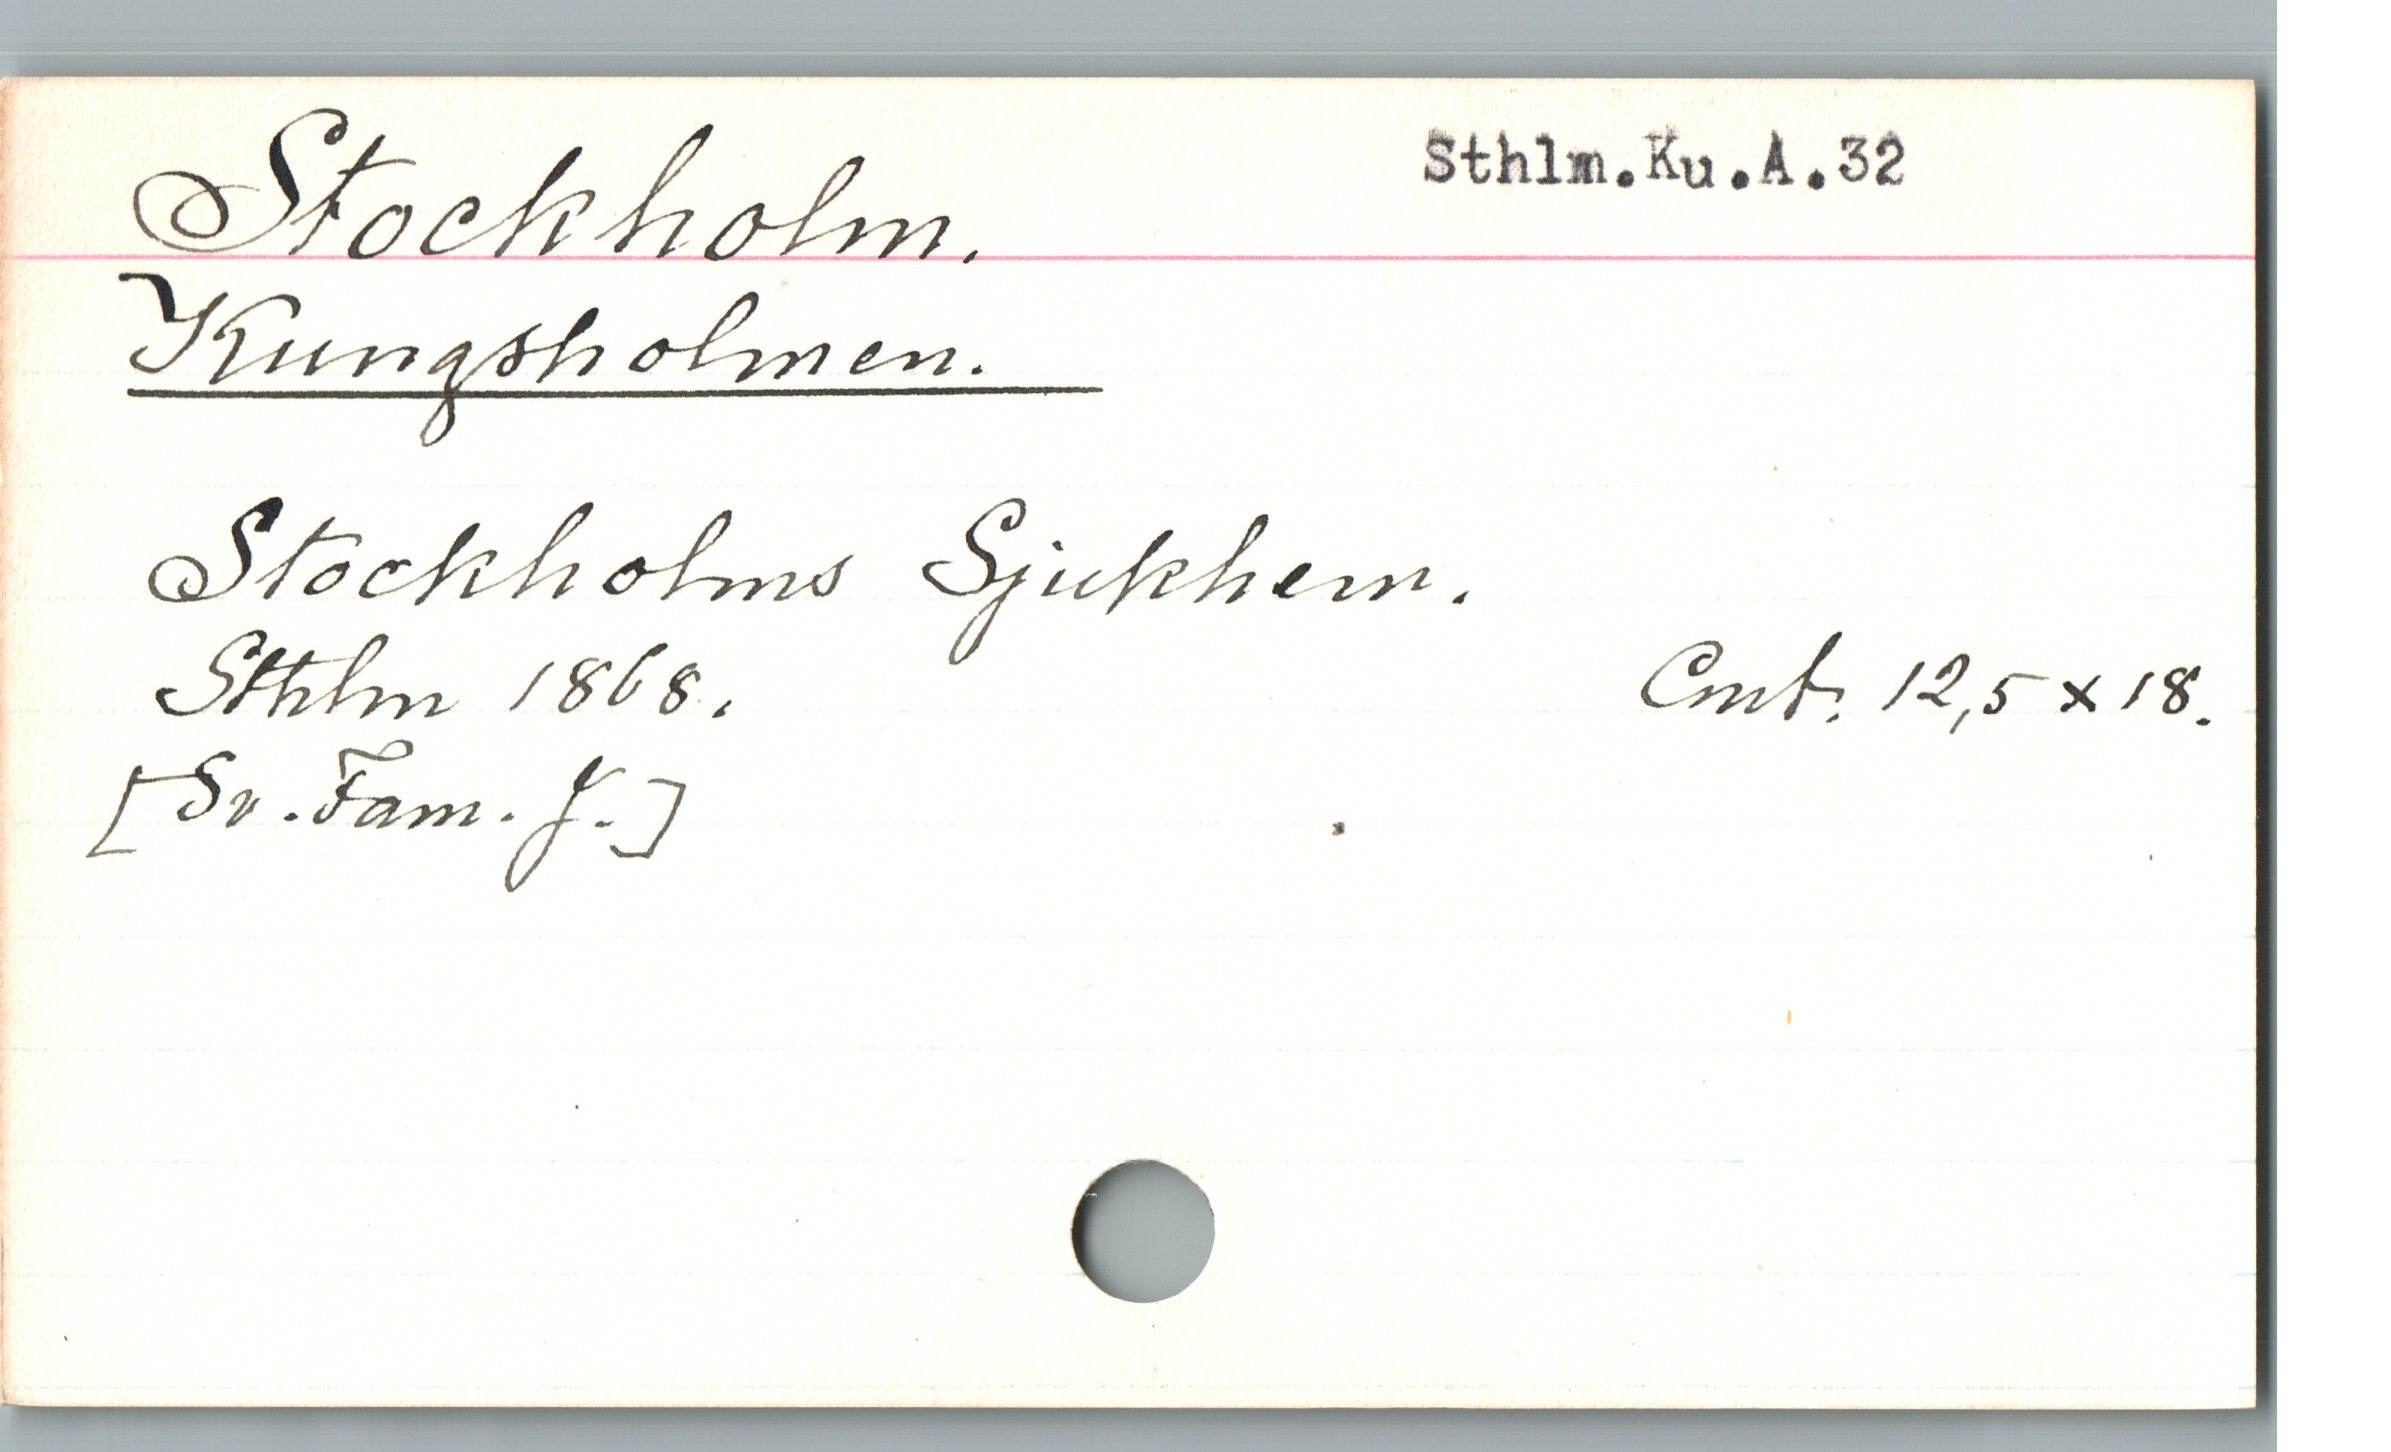 Stockholm. Sthlm.Ku.A.32
Kungsholmen.
Stockholms Sjukhem.
Sthlm 1868. Cmt. 12,5 x 18.
[Sv. Fam. J.]